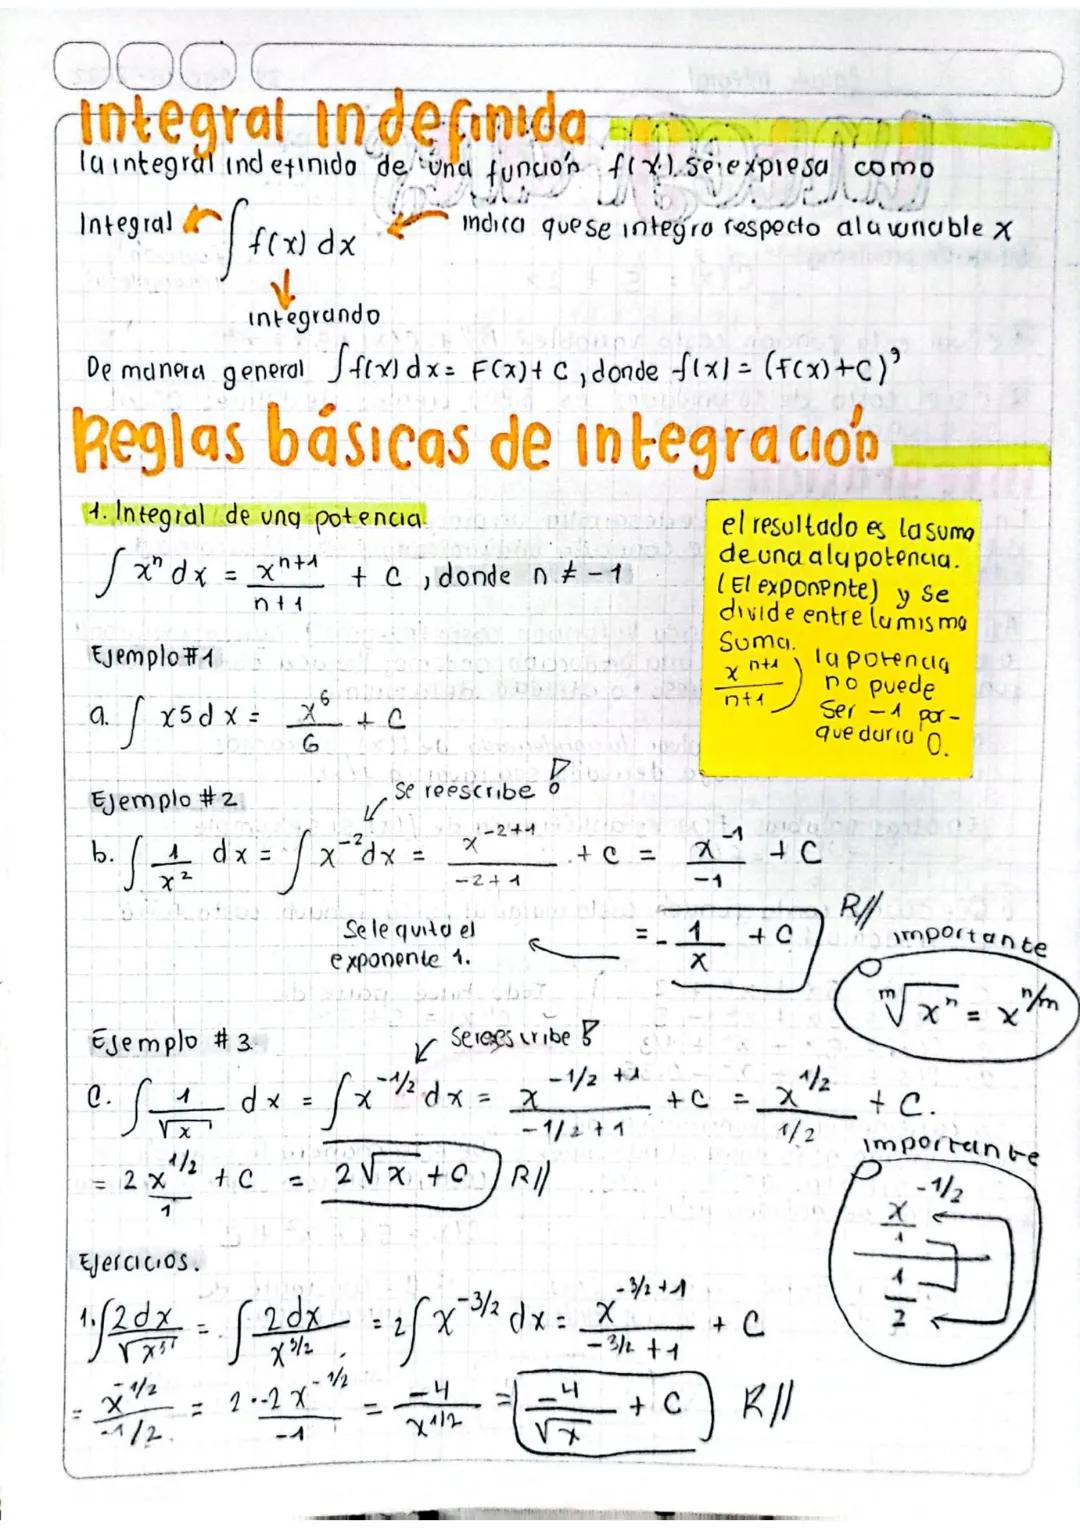 Integral Indefinida
la integral indefinido de una función f(x) se expresa como
Integral ∫ f(x) dx indica que se integra respecto a la variable x
integrando
De manera general ∫ f(x) dx = F(x) + C, donde f(x) = (F(x)+C)'
Reglas básicas de integración
1. Integral de una potencia
∫ xⁿ dx = xⁿ⁺¹/n+1 + C, donde n ≠ -1
el resultado es la suma
de una a la potencia.
(El exponente) y se
divide entre la misma
suma.
xⁿ⁺¹/n+1) la potencia
no puede
ser -1 por-
que daria 0.
Ejemplo #1
a. ∫ x5 dx = x⁶/6 + C
Ejemplo #2
Se reescribe!
b. ∫ 1/x² dx = ∫ x⁻² dx = x⁻²⁺¹/-2+1 + C = x⁻¹/-1 + C
Se le quita el
exponente 1.
= - 1/x + C R//
importante
ᵐ√xⁿ = x^n/m
Ejemplo #3
Se reescribe!
C. ∫ 1/√x dx = ∫ x^-1/2 dx = x^-1/2+1/-1/2+1 + C = x^1/2/1/2 + C.
= 2x^1/2/1 + C = 2√x + C R//
importante
x^-1/2/1
1/2
Ejercicios.
1. ∫ 2dx/√x³ = ∫ 2dx/x^3/2 = 2∫ x^-3/2 dx = x^-3/2+1/-3/2+1 + C
= x^-1/2/-1/2 = 2·-2x^-1/2/-1 = -4/x^1/2 = -4/√x + C R//